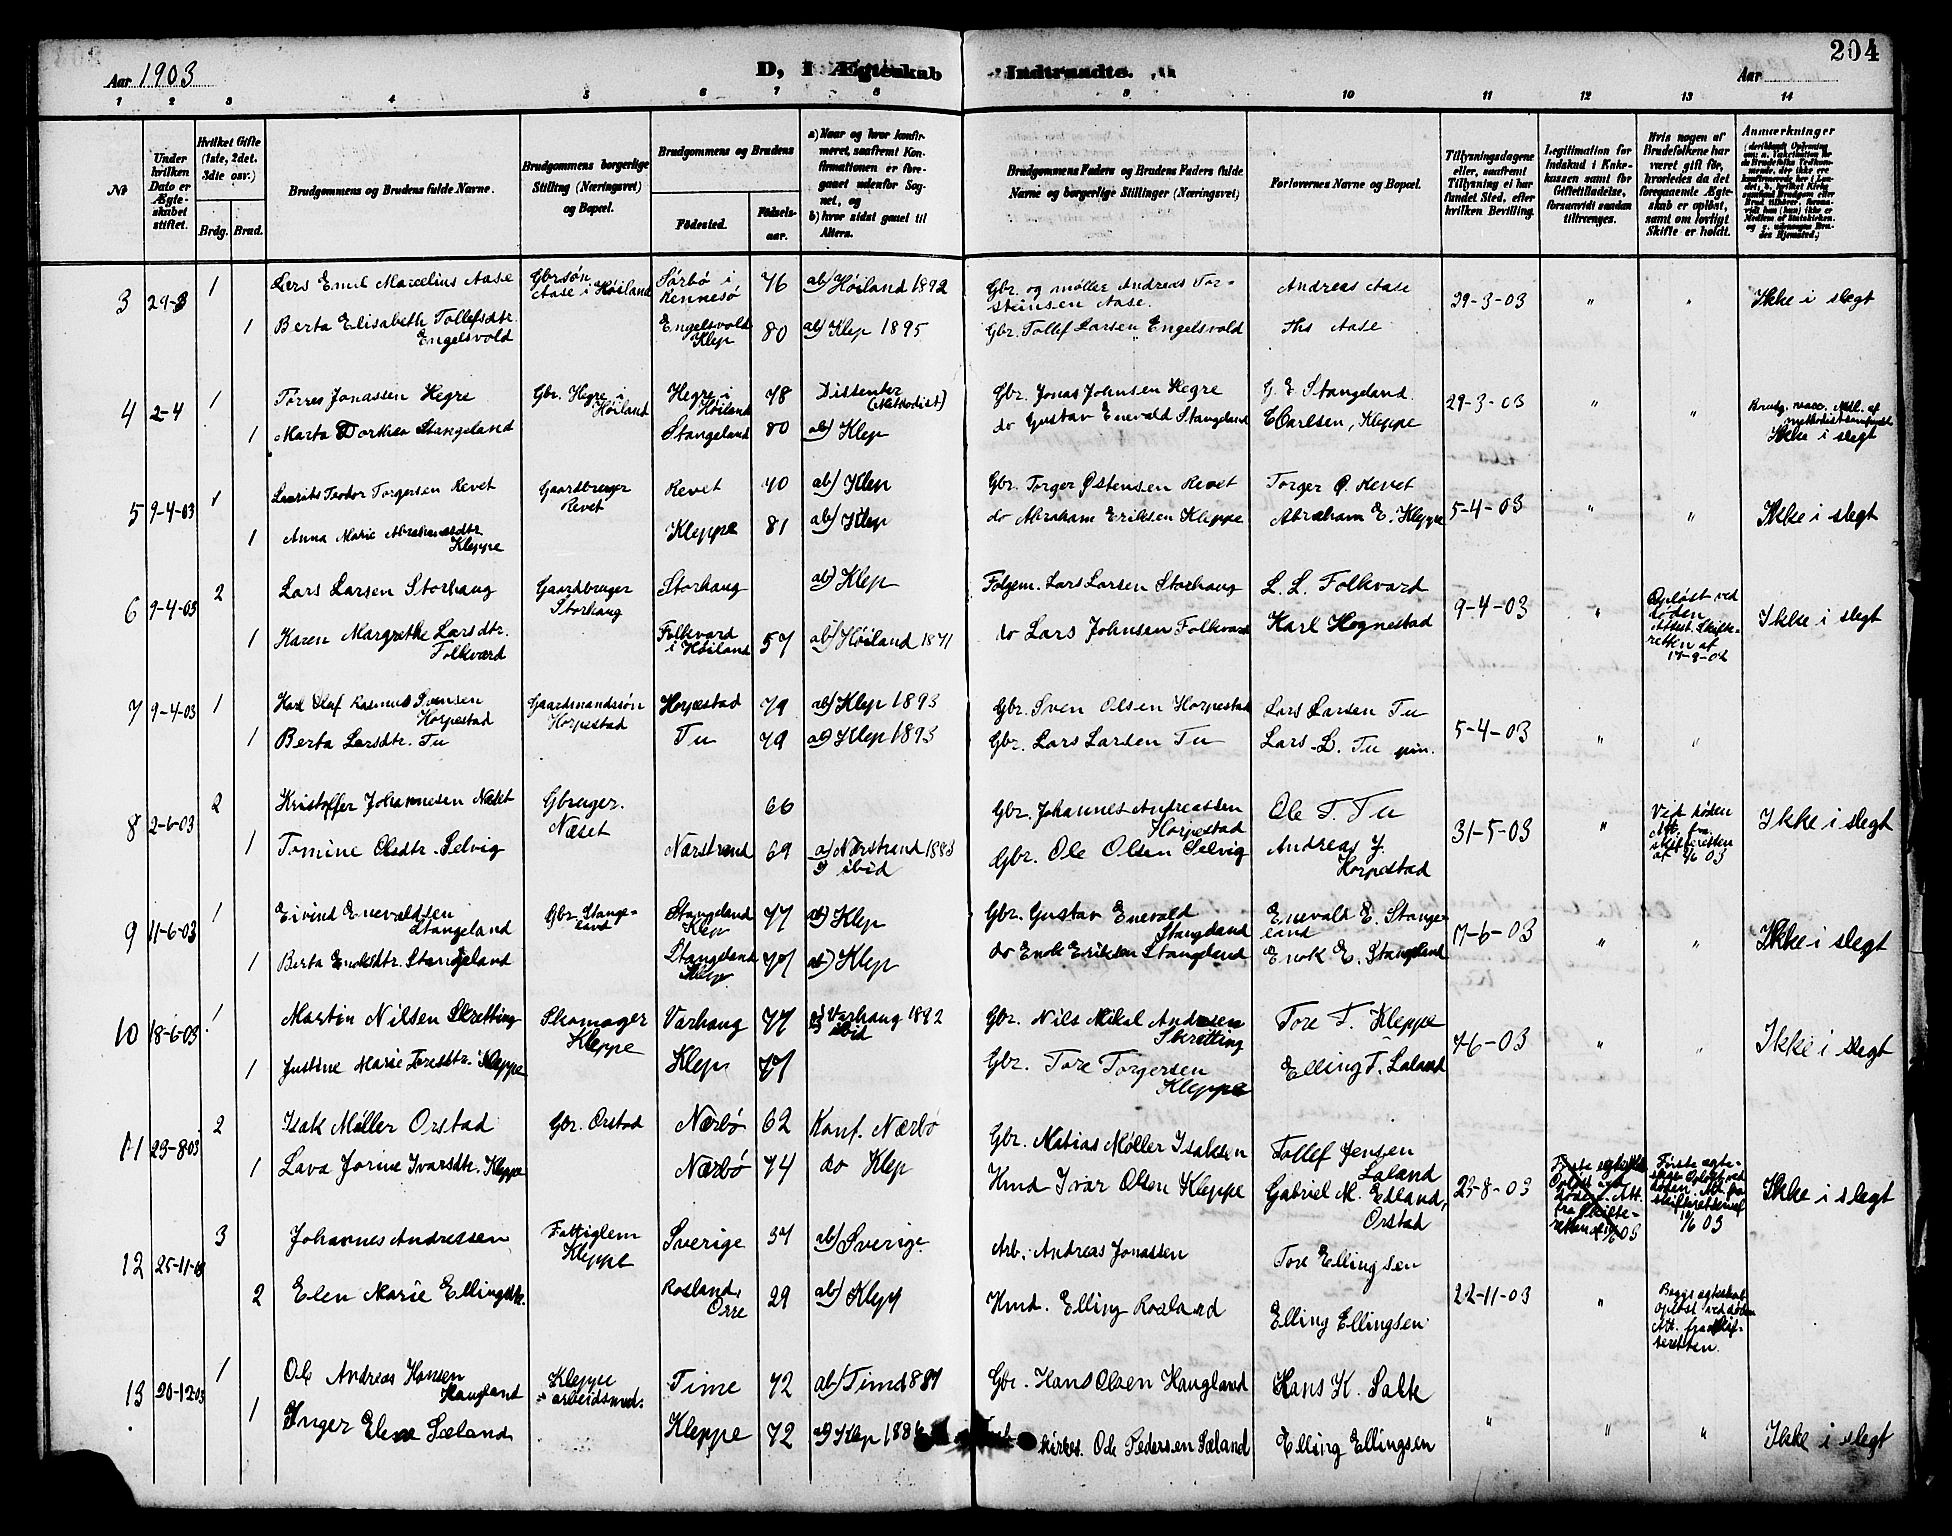 Aar 1903
D, I Ægteskab
Indtraadte.
Aar
204
1 2 3 4 5 6 7 8 9 10 11 12 13 14
No
Under hvilken Dato er Ægteskabet stiftet.
Hvilket Gifte (1ste, 2det. 3die osv.)
Brdg. Brud.
Brudgommens og Brudens fulde Navne.
Brudgommens borgerlige Stilling (Næringsvei) og Bopæl.
Brudgommens og Brudens
Fødested.
Fødselsaar.
a) Naar og hvor konfirmeret, saafremt Konfirmationen er foregaaet udenfor Sognet, og
b) hvor sidst gaaet til Alters.
Brudgommens Faders og Brudens Faders fulde Navne og borgerlige Stillinger (Næringsvei)
Forlovernes Navne og Bopæl.
Tillysningsdagene eller, saafremt Tillysning ei har fundet Sted, efter hvilken Bevilling.
Legitimation for Indskud i Enkekassen samt for Giftetilladelse, forsaavidt saadan tiltrænges.
Hvis nogen af Brudefolkene har været gift før, hvorledes da det foregaaende Ægteskab er opløst, samt om lovligt Skifte er holdt.
Anmærkninger
3 29-3 1 Lars Emil Marcelius Aase Gbrsøn Aase i Høiland Sørbø i Rennesø 76 ab) Høiland 1892 Gbr. og møller Andreas Torsteinsen Aase. Andreas Aase 29-3-03 " " Ikke i slegt
1 Berta Elisabeth Tollefsdtr. Engelsvold Engelsvold Klep 80 ab) Klep 1895 Gbr. Tollef Larsen Engelsvold Ths Aase
4 2-4 1 Torres Jonassen Hegre Gbr. Hegre i Høiland Hegre i Høiland 78 Dissenter (Methodist) Gbr. Jonas Johnsen Hegre G. E. Stangeland 29-3-03 " " Ikke i slegt
1 Marta Dorthea Stangeland Stangeland 80 ab) Klep do Gustav Enevald Stangeland C Carlsen, Kleppe
5 9-4-03 1 Laurits Teodor Torgersen Revet Gaardbruger Revet Revet 70 ab) Klep Gbr. Torger Østensen Revet Torger Ø. Revet 5-4-03 " " Ikke i slegt
1 Anna Marie Abrahamsdtr Kleppe Kleppe 81 ab) Klep do Abraham Eriksen Kleppe Abraham E. Kleppe
6 9-4-03 2 Lars Larsen Storhaug Gaardbruger Storhaug Storhaug ab) Klep Folgem. Lars Larsen Storhaug L. L. Folkvard 9-4-03 " Opløst ved døden Attest. Skifteretten af 17-9-02 Ikke i slegt
1 Karen Margrethe Larsdtr. Folkvard Folkvard i Høiland 57 ab) Høiland 1871 do Lars Johnsen Folkvard Karl Hognestad
7 9-4-03 1 Karl Olaf Rasmus Svensen Horpestad Gaardmandssøn Horpestad Horpestad 79 ab) Klep 1893 Gbr. Sven Olsen Horpestad Lars Larsen Tu 5-4-03 " "
1 Berta Larsdtr. Tu Tu 79 ab) Klep 1893 Gbr. Lars Larsen Tu Lars L. Tu
8 2-6-03 2 Kristoffer Johannesen Næset Gbruger. Næset 66 Gbr. Johannes Andreassen Horpestad Ole T. Tu 31-5-03 " Ved døden Att. fra skifteretten af 2/6 03 Ikke i slegt
1 Tomine Olsdtr. Selvig Nærstrand 69 a) Nærstrand 1883 b) ibid Gbr. Ole Olsen Selvig Andreas J. Horpestad
9 11-6-03 1 Eivind Enevaldsen Stangeland Gbr Stangeland Stangeland Klep 77 ab) Klep Gbr. Gustav Enevald Stangeland Enevald E. Stangeland 7-6-03 " " Ikke i slegt
1 Berta Enoksdtr. Stangeland Stangeland Klep 77 ab) Klep do Enok Eriksen Stangeland Enok E. Stangeland
10 18-6-03 1 Martin Nilsen Skretting Skomager Kleppe Varhaug 77 a) Varhaug 1892 b) ibid Gbr. Nils Mikal Andersen Skretting Tore T. Kleppe 7-6-03 " " Ikke i slegt
1 Justine Marie Toresdtr. Kleppe Klep 77 Gbr. Tore Torgersen Kleppe Elling T. Laland
11 23-8-03 2 Isak Møller Orstad Gbr. Orstad Nærbø 62 Konf. Nærbø Gbr. Matias Møller Isaksen Tollef Jensen Laland 23-8-03 Første ægteskab Opløst ved døden. Att. fra skifteretten af 19/6 03 Ikke i slegt
1 Lava Jorine Ivarsdtr. Kleppe Nærbø 74 do Klep Kmd Ivar Olsen Kleppe Gabriel M. Edland, Orstad
12 25-11-03 3 Johannes Andressen Fattiglem Kleppe Sverige 37 ab) Sverige. Arb. Andreas Jonassen Tore Ellingsen 22-11-03 " Begge egteskab opløst ved døden Att. fra skifteretten.
2 Elen Marie Ellingsdtr. Rosland, Orre 29 ab) Klep Kmd. Elling Rosland Elling Ellingsen
13 20-12-03 1 Ole Andreas Hansen Haugland Kleppe arbeidsmd. Time 72 ab) Time 1887 Gbr. Hans Olsen Haugland Hans K. Salte " " " Ikke i slegt
1 Inger Elene Sæland Kleppe 72 ab) Klep 1886 kirkes. Ole Pedersen Sæland Elling Ellingsen